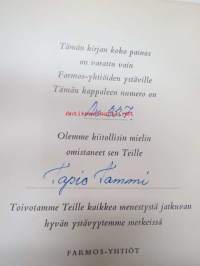 Tämän kirjan koko painos
on varattu vain
Farmos-yhtiöiden ystäville
Tämän kappaleen numero on
Olemme kiitollisin mielin
omistaneet sen Teille
Tapio Tammi
Toivotamme Teille kaikkea menestystä jatkuvan
hyvän ystävyytemme merkeissä
FARMOS-YHTIÖT